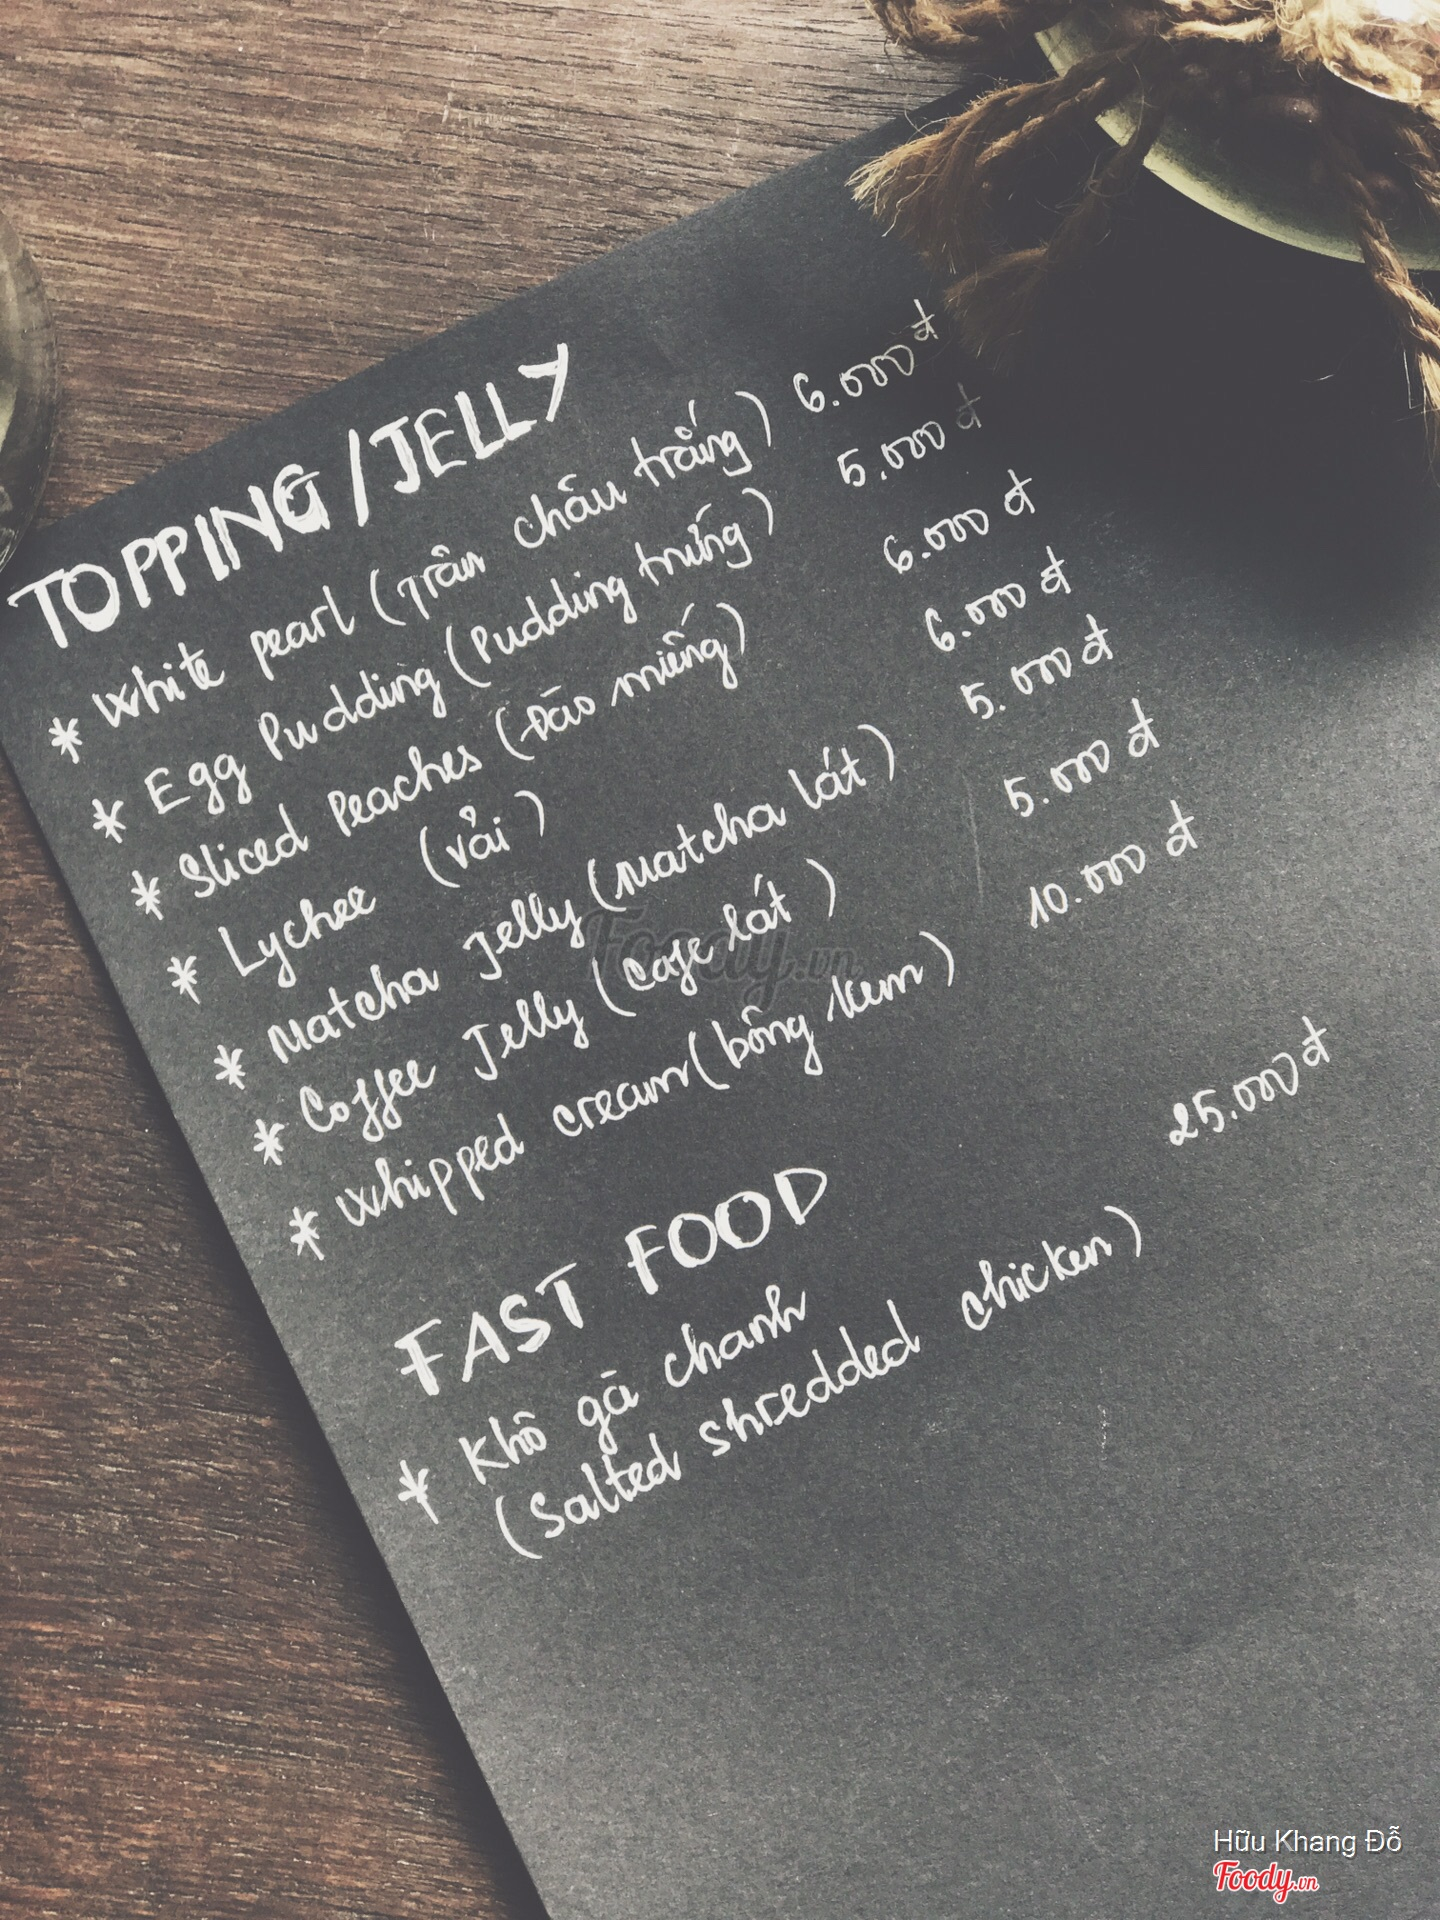 TOPPING/JELLY
* White pearl (Trân châu trắng) 6.000 đ
* Egg Pudding (Pudding trứng) 5.000 đ
* Sliced Peaches (Đào miếng) 6.000 đ
* Lychee (vải) 6.000 đ
* Matcha Jelly (Matcha lát) 5.000 đ
* Coffee Jelly (Cafe lát) 5.000 đ
* Whipped cream (bông kem) 10.000 đ
FAST FOOD
* Khô gà chanh 25.000 đ
(Salted shredded chicken)
Foody.vn
Hữu Khang Đỗ
Foody.vn